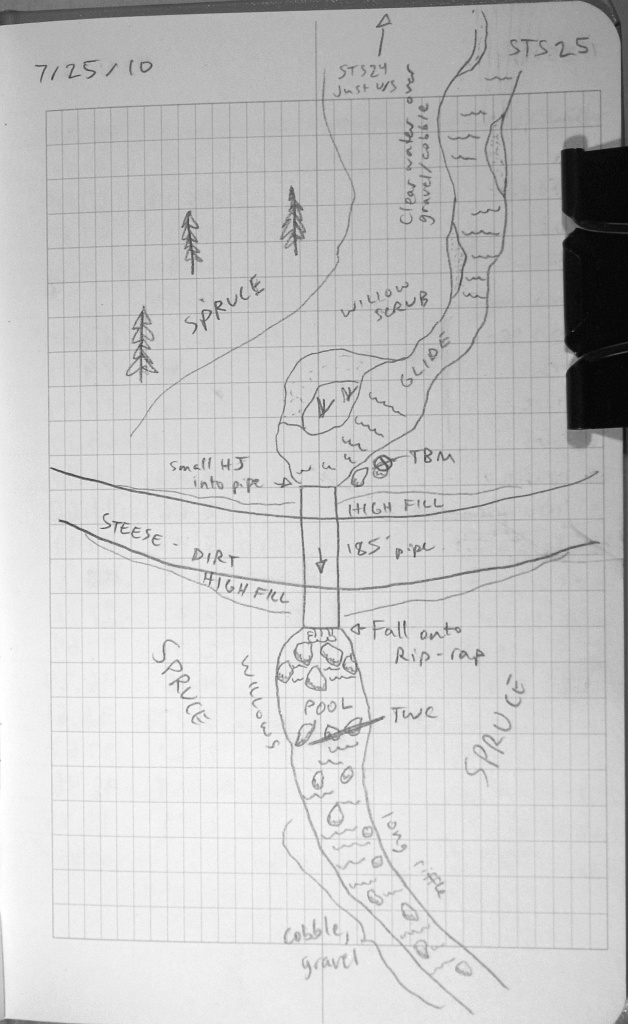 7/25/10
STS25
STS24
Just U/S
Clear water over
gravel/cobble
SPRUCE
WILLOW
SCRUB
GLIDE
TBM
Small HJ
into pipe
HIGH FILL
STEESE - DIRT
185' pipe
HIGH FILL
Fall onto
Rip-rap
SPRUCE
WILLOWS
POOL
TWC
SPRUCE
long riffle
cobble,
gravel